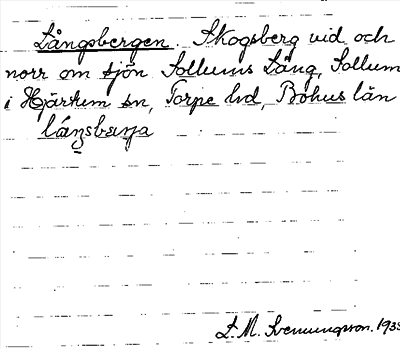 Långsbergen. Skogsberg vid och
norr om sjön Sollums Lång, Sollum
i Hjärtum sn, Torpe hd, Bohus län
láŋsbærja
L. M. Svenungsson. 193